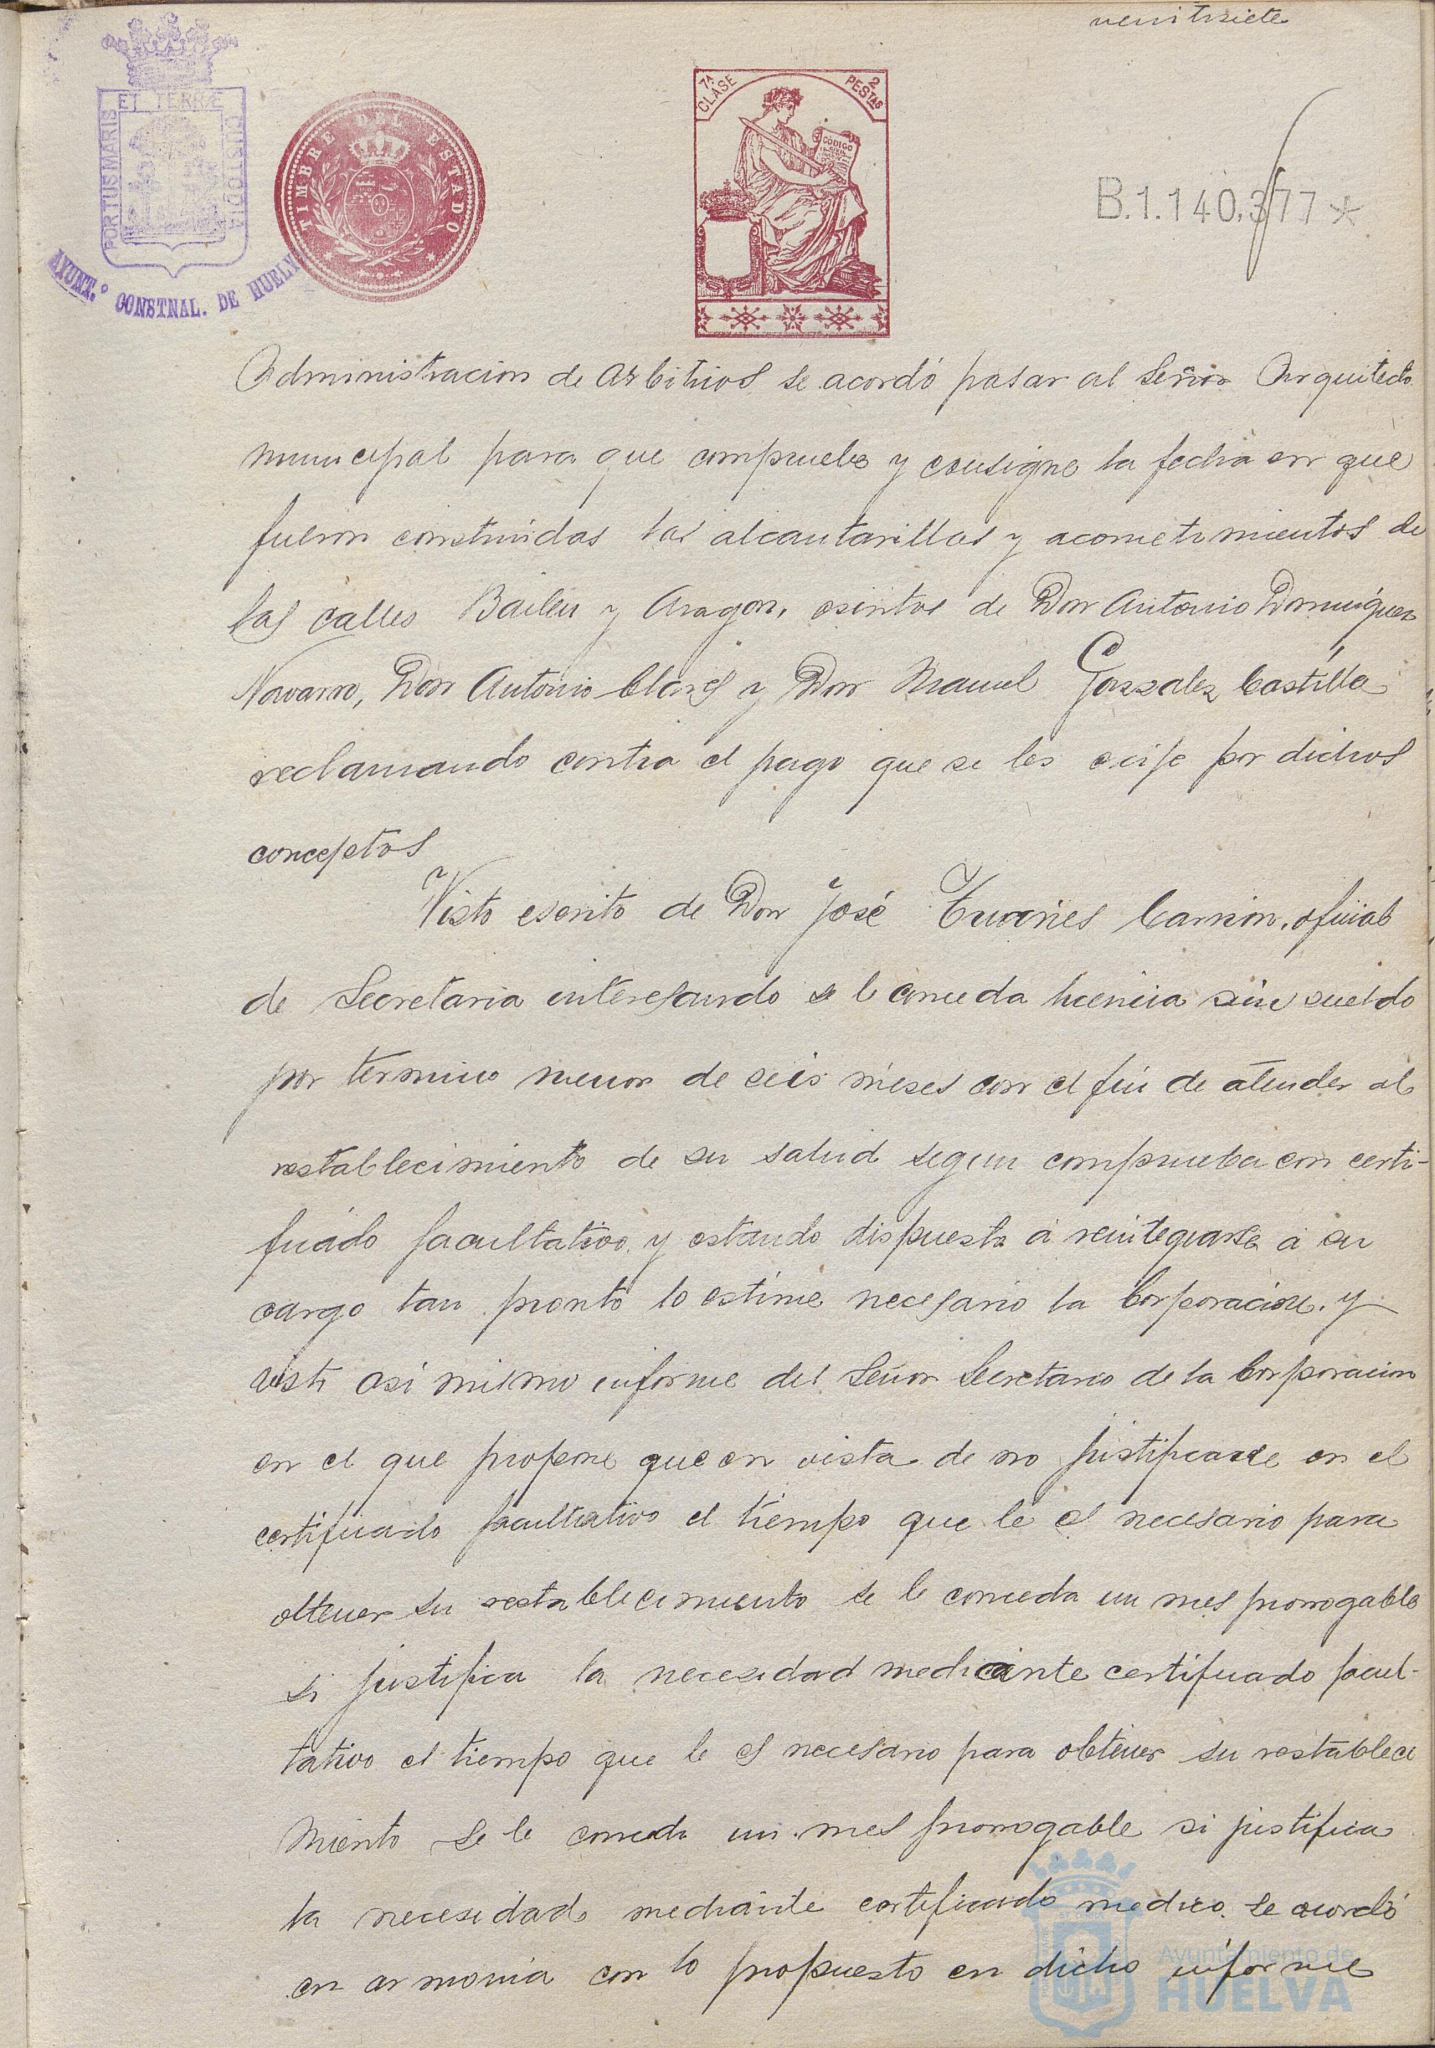 veintisiete
PORTUS MARIS
ET TERRÆ
CUSTODIA
AYUNT.º CONSTNAL. DE HUELVA
TIMBRE DEL ESTADO
7ª CLASE
2 PESTAS
CODIGO
B.1.140.377*
Administracion de Arbitrios se acordó pasar al Señor Arquitecto
municipal para que compruebe y consigne la fecha en que
fueron construidas las alcantarillas y acometimientos de
las calles Bailen y Aragon, escritos de Don Antonio Dominguez
Navarro, Don Antonio Clares y Don Manuel Gonzalez Castilla
reclamando contra el pago que se les exije por dichos
conceptos
Visto escrito de Don José Carrion, oficial
de Secretaria interesando se le conceda licencia sin sueldo
por termino menor de seis meses con el fin de atender al
restablecimiento de su salud segun comprueba con certi-
ficado facultativo, y estando dispuesto á reintegrarse á su
cargo tan pronto lo estime necesario la Corporacion, y
visto asi mismo informe del Señor Secretario de la Corporacion
en el que propone que en vista de no justificarse en el
certificado facultativo el tiempo que le es necesario para
obtener su restablecimiento se le conceda un mes prorrogable
si justifica la necesidad mediante certificado facul-
tativo el tiempo que le es necesario para obtener su restableci
miento se le conceda un mes prorrogable si justifica
la necesidad mediante certificado medico. Se acordó
en armonia con lo propuesto en dicho informe
Ayuntamiento de
HUELVA